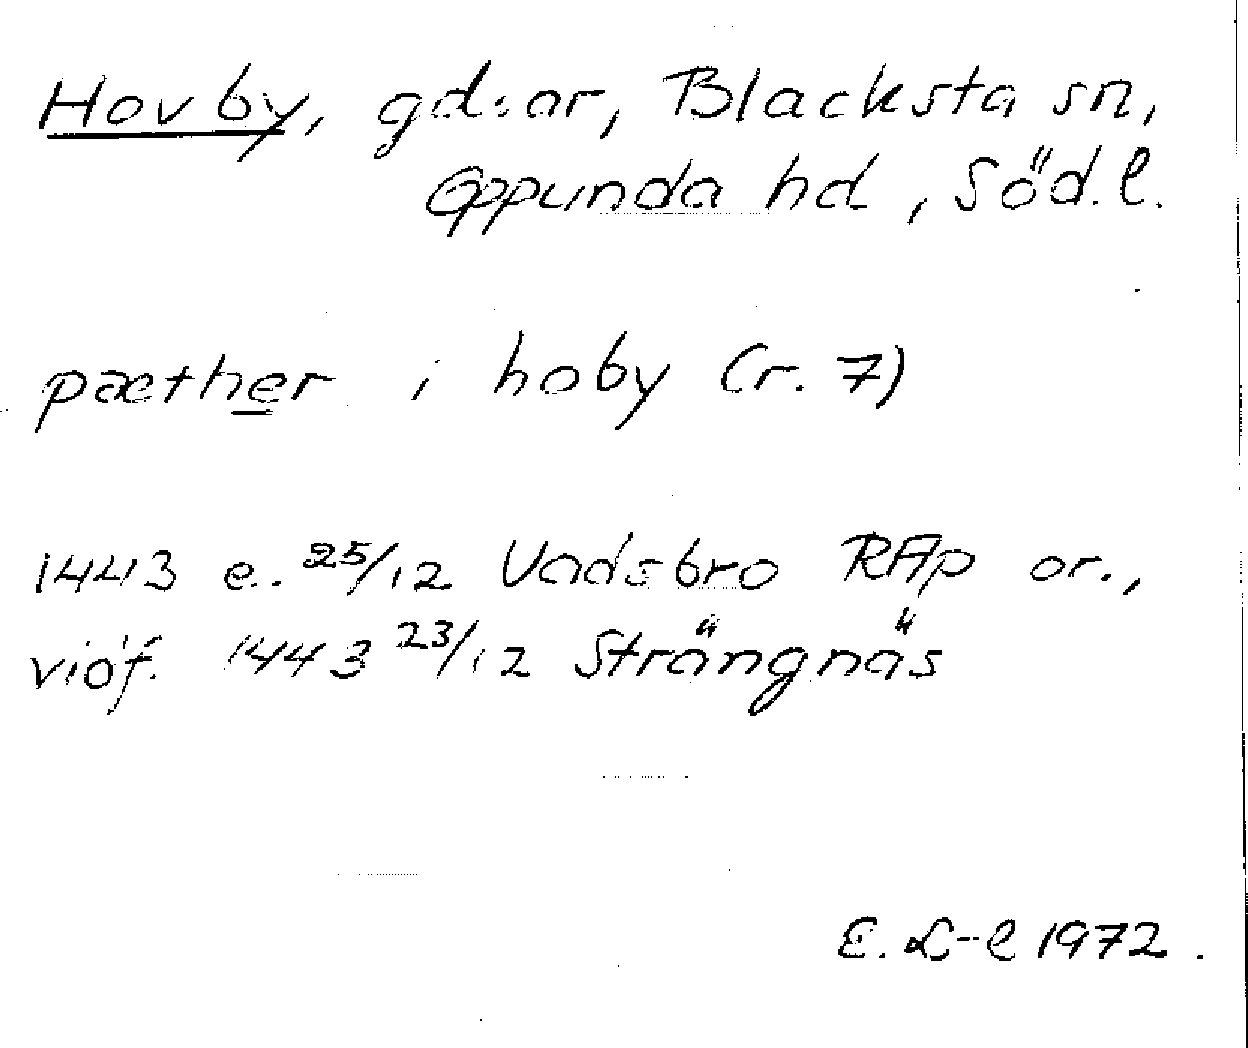 Hovby, gd:ar, Blacksta sn,
Oppunda hd, Söd.l.
pæther i hoby (r. 7)
1443 e. 25/12 Vadsbro RAp or.,
vidf. 1443 23/12 Strängnäs
E. L-l 1972.